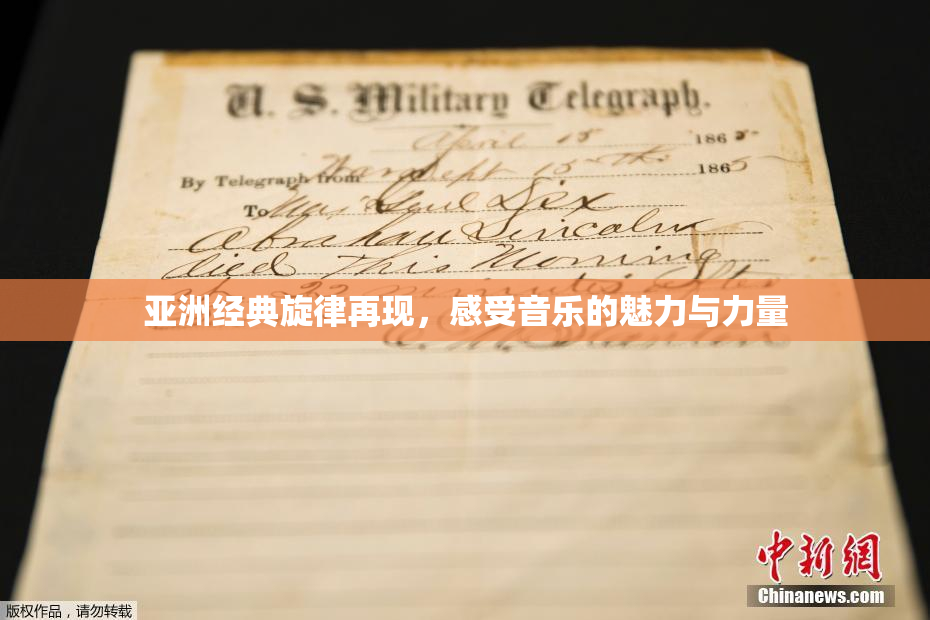 U. S. Military Telegraph.
April 15 1865
By Telegraph from War Dept 15th 1865
To Maj Genl Dix
Abraham Lincoln
died This Morning
at 22 minutes after
亚洲经典旋律再现，感受音乐的魅力与力量
E. M. Stanton
中新網
Chinanews.com
版权作品，请勿转载